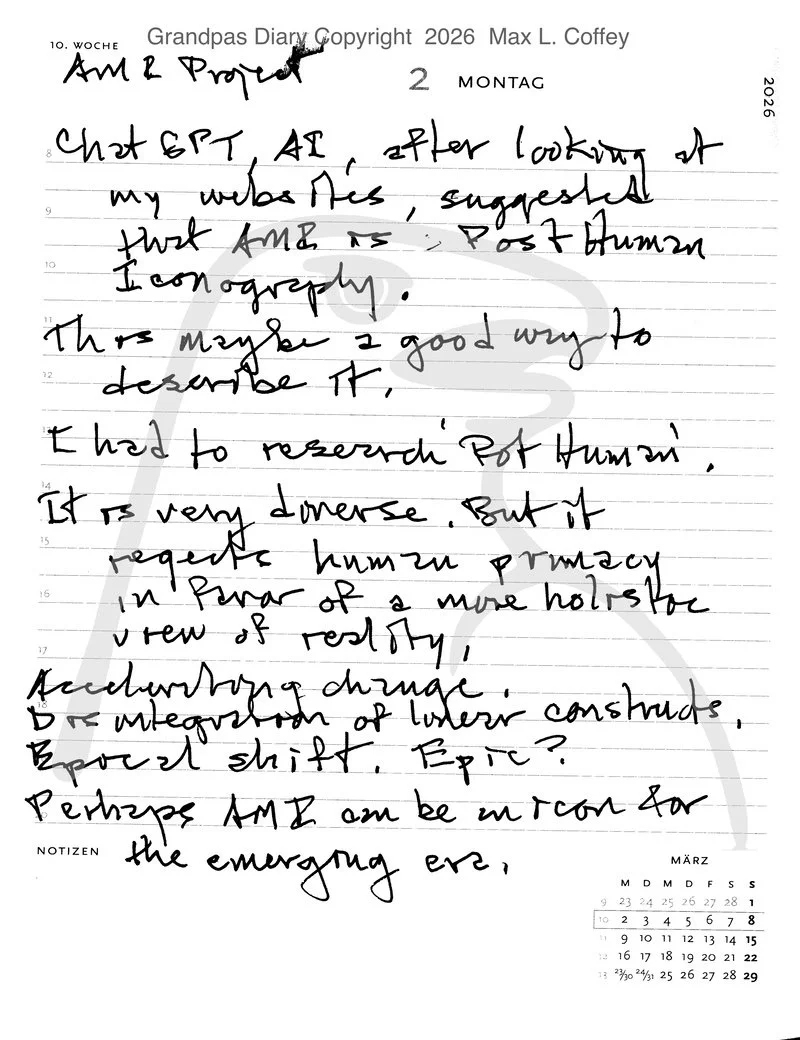 Grandpas Diary Copyright 2026 Max L. Coffey
10. WOCHE
AMI Project
2 MONTAG
2026
8 Chat GPT, AI, after looking at
my websites, suggested
9
that AMI is : Post Human
10
Iconography.
11
This maybe a good way to
12
describe it.
13
I had to research 'Pot Human'.
14
It is very diverse. But it
15
regects human primacy
16
in favor of a more holistic
view of reality.
17
Accelerating change.
18
Disintegration of linear constructs.
Epocal shift. Epic?
Perhaps AMI can be an icon for
NOTIZEN the emerging era.
MÄRZ
M D M D F S S
9 23 24 25 26 27 28 1
10 2 3 4 5 6 7 8
11 9 10 11 12 13 14 15
12 16 17 18 19 20 21 22
13 23/30 24/31 25 26 27 28 29